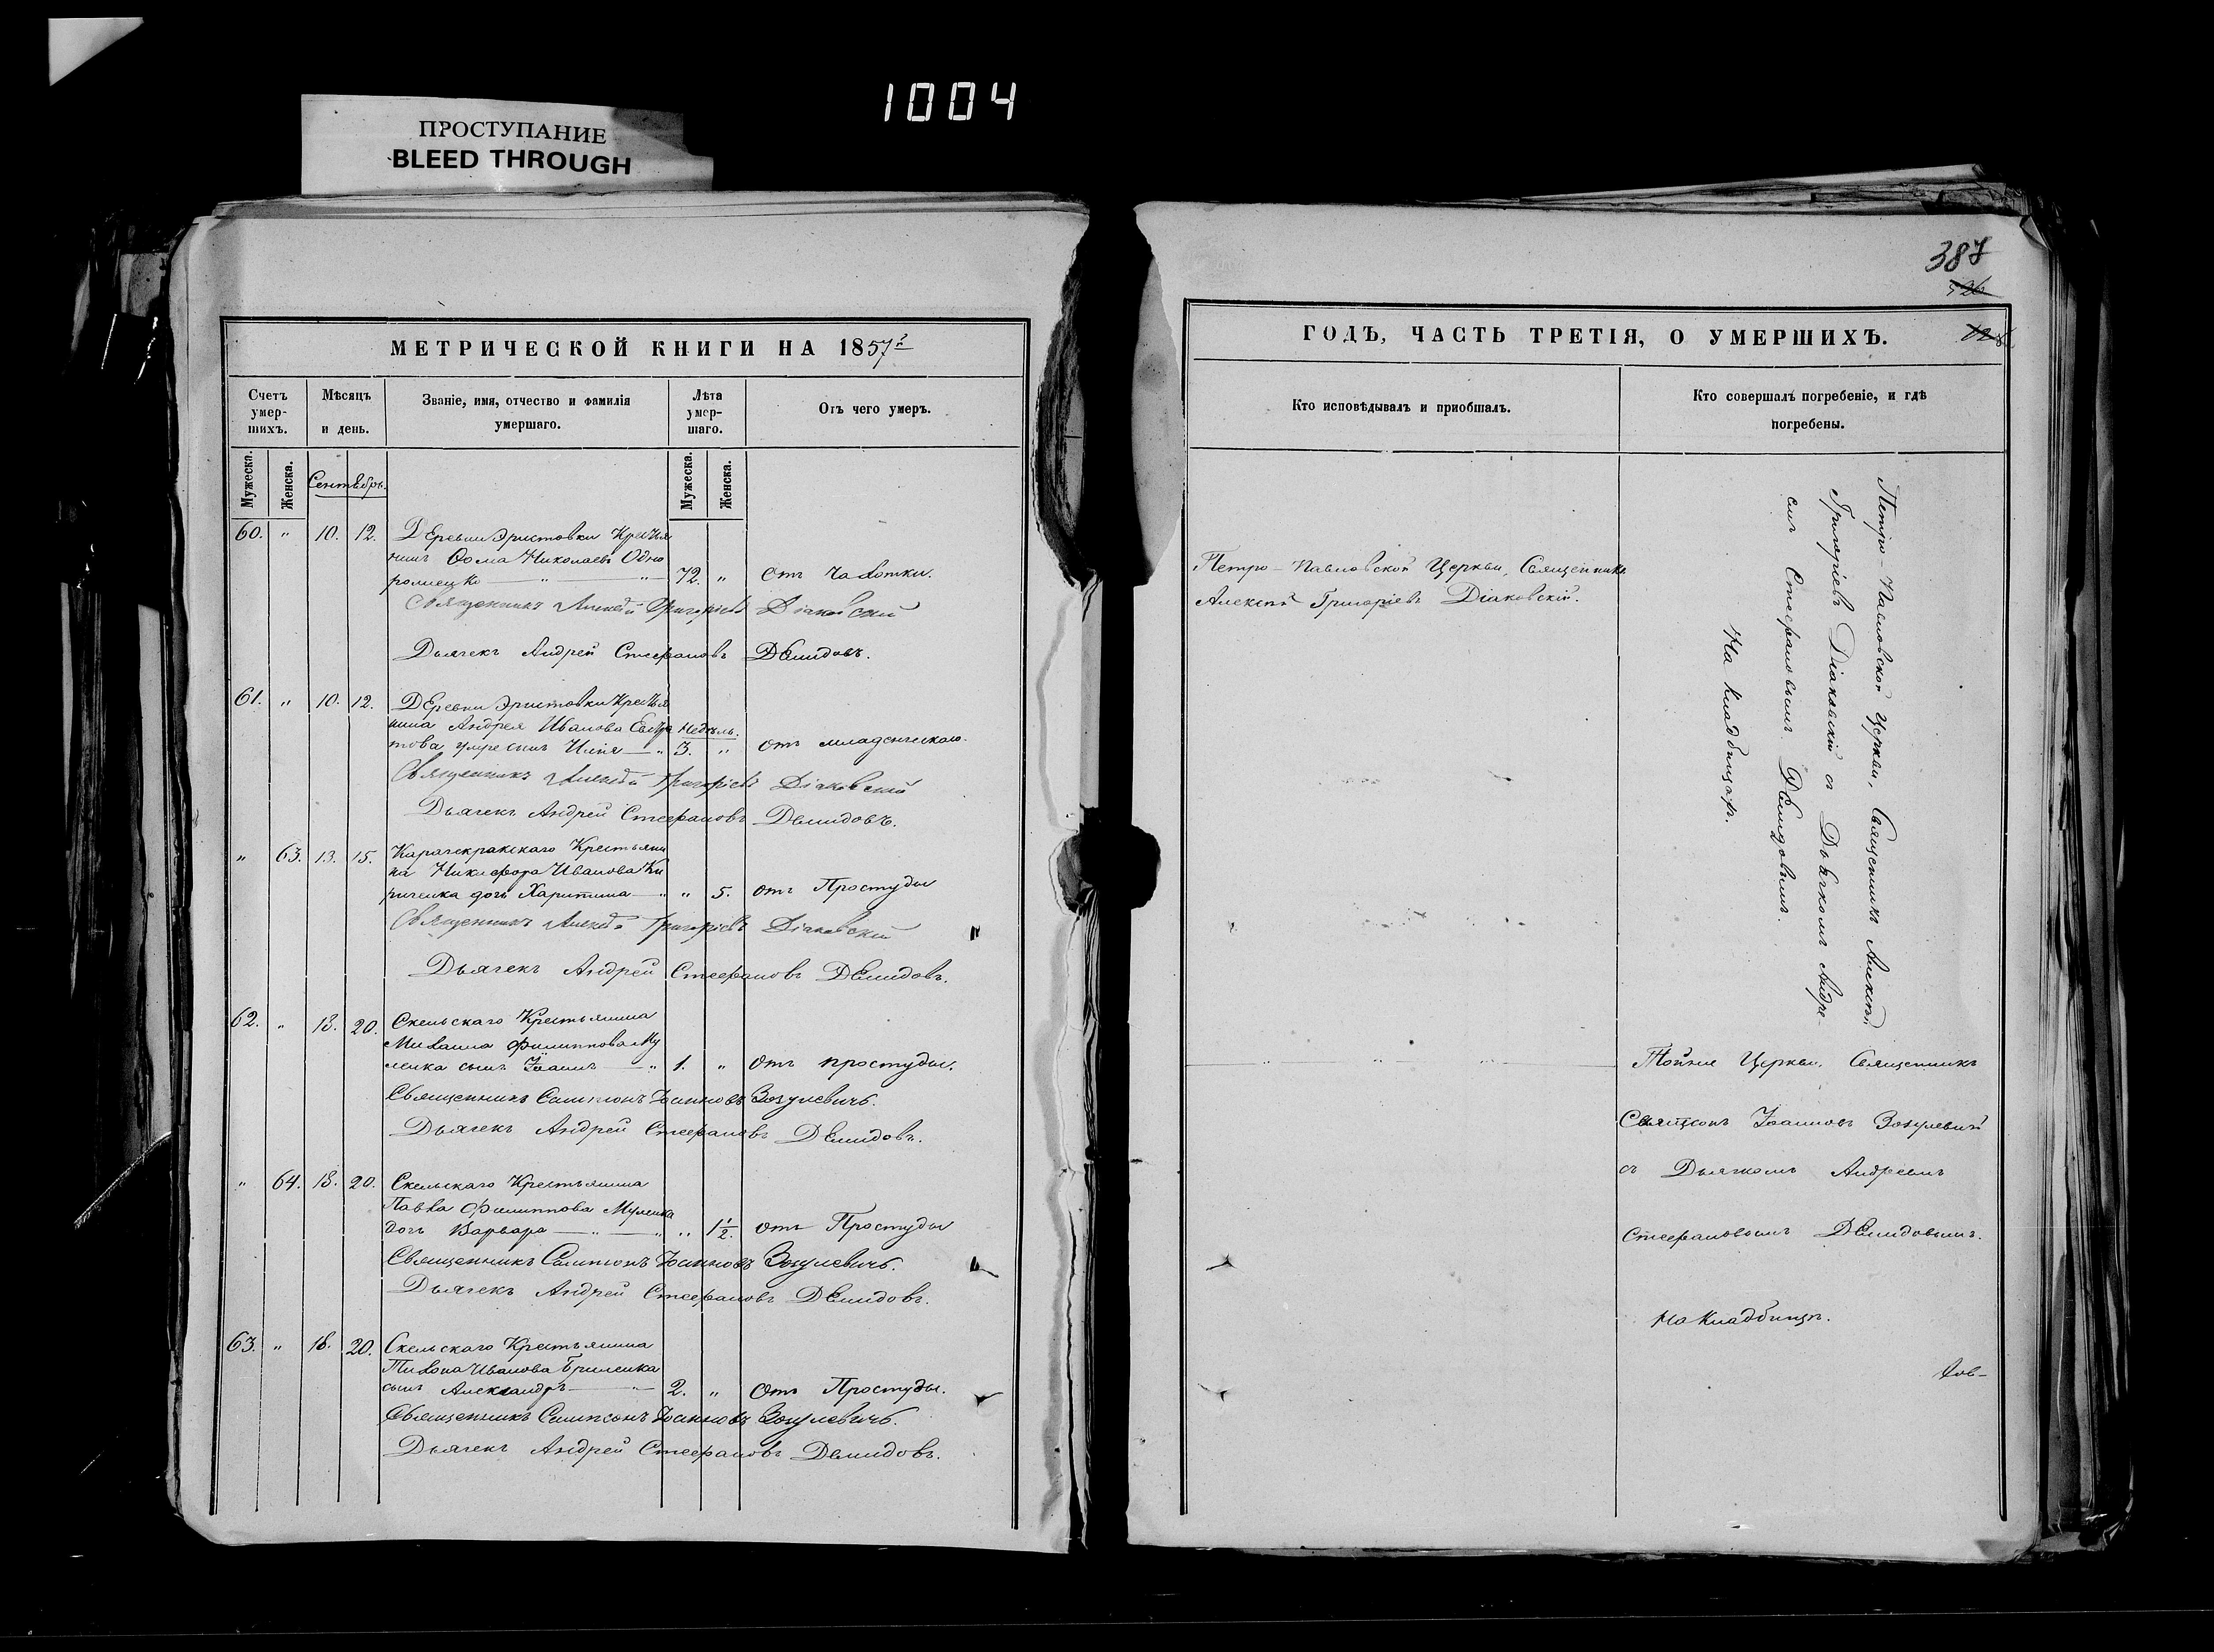 1004
ПРОСТУПАНИЕ
BLEED THROUGH
МЕТРИЧЕСКОЙ КНИГИ НА 1857й
Счетъ умер-шихъ.
Мѣсяцъ и день.
Званіе, имя, отчество и фамилія умершаго.
Лѣта умер-шаго.
Отъ чего умеръ.
Мужеска. Женска. Сентябрь. Мужеска. Женска.
60. " 10. 12. Деревни Эристовки Крестья
нинъ Ѳома Николаевъ Одно
72. " отъ Чахотки.
Священникъ Алексѣй Григоріевъ Діаковскій
Дьячекъ Андрей Стефановъ Демидовъ.
61. " 10. 12. Деревни Эристовки Крестья
нина Андрея Иванова недѣль.
това умре сынъ Илія — " 3. " отъ младенческаго.
Священникъ Алексѣй Григоріевъ Діаковскій
Дьячекъ Андрей Стефановъ Демидовъ.
" 63. 13. 15. Карачекракскаго Крестьяни
на Никифора Иванова Ки
риченка дочь Харитина — " " 5. отъ Простуды
Священникъ Алексѣй Григоріевъ Діаковскій
Дьячекъ Андрей Стефановъ Демидовъ.
62. " 18. 20. Скельскаго Крестьянина
Михаила Филиппова Му
ленка сынъ Іоаннъ — " 1. " отъ простуды.
Священникъ Сампсонъ Іоанновъ Зозулевичъ.
Дьячекъ Андрей Стефановъ Демидовъ.
" 64. 18. 20. Скельскаго Крестьянина
Павла Филиппова Муленка
дочь Варвара — " — " " 1 1/2. отъ Простуды
Священникъ Сампсонъ Іоанновъ Зозулевичъ.
Дьячекъ Андрей Стефановъ Демидовъ.
63. " 18. 20. Скельскаго Крестьянина
Тихона Иванова Гриленка
сынъ Александръ — " — 2. " отъ Простуды.
Священникъ Сампсонъ Іоанновъ Зозулевичъ.
Дьячекъ Андрей Стефановъ Демидовъ.
387
ГОДЪ, ЧАСТЬ ТРЕТІЯ, О УМЕРШИХЪ.
Кто исповѣдывалъ и пріобщалъ.
Кто совершалъ погребеніе, и гдѣ погребены.
Петро-Павловской Церкви, Священникъ
Алексѣй Григоріевъ Діаковскій.
Петро-Павловской Церкви, Священникъ Алексѣй
Григоріевъ Діаковскій съ Дьячкомъ Андре-
емъ Стефановымъ Демидовымъ.
На кладбищахъ.
Тойже Церкви, Священникъ
Сампсонъ Іоанновъ Зозулевичъ
съ Дьячкомъ Андреемъ
Стефановымъ Демидовымъ.
На кладбищѣ.